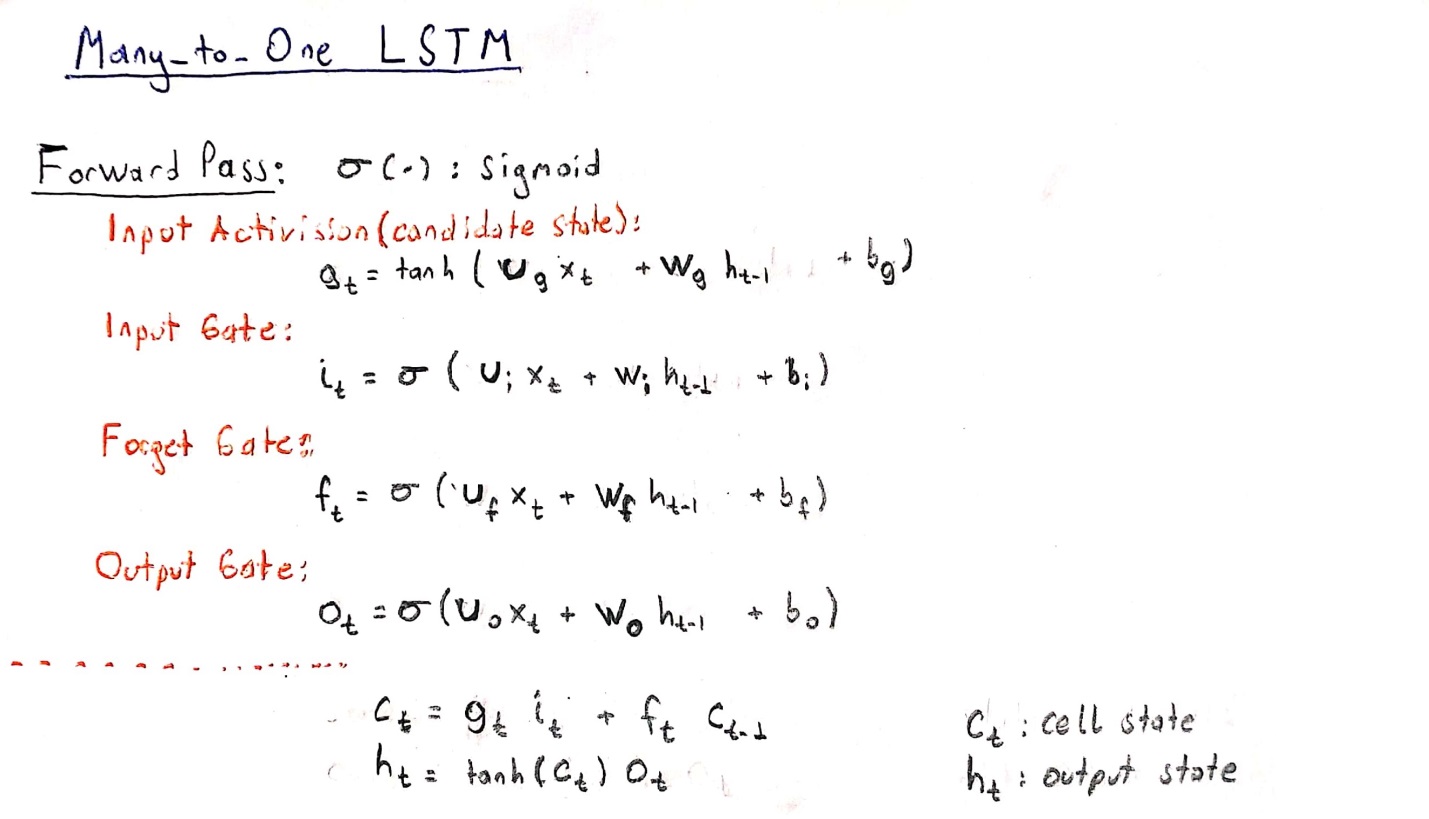 Many-to-One LSTM
Forward Pass: σ(.) : Sigmoid
Input Activision (candidate state):
g_t = tanh ( U_g x_t + W_g h_t-1 + b_g )
Input Gate:
i_t = σ ( U_i x_t + W_i h_t-1 + b_i )
Forget Gate:
f_t = σ ( U_f x_t + W_f h_t-1 + b_f )
Output Gate:
o_t = σ ( U_o x_t + W_o h_t-1 + b_o )
c_t = g_t i_t + f_t c_t-1 c_t : cell state
h_t = tanh(c_t) o_t h_t : output state